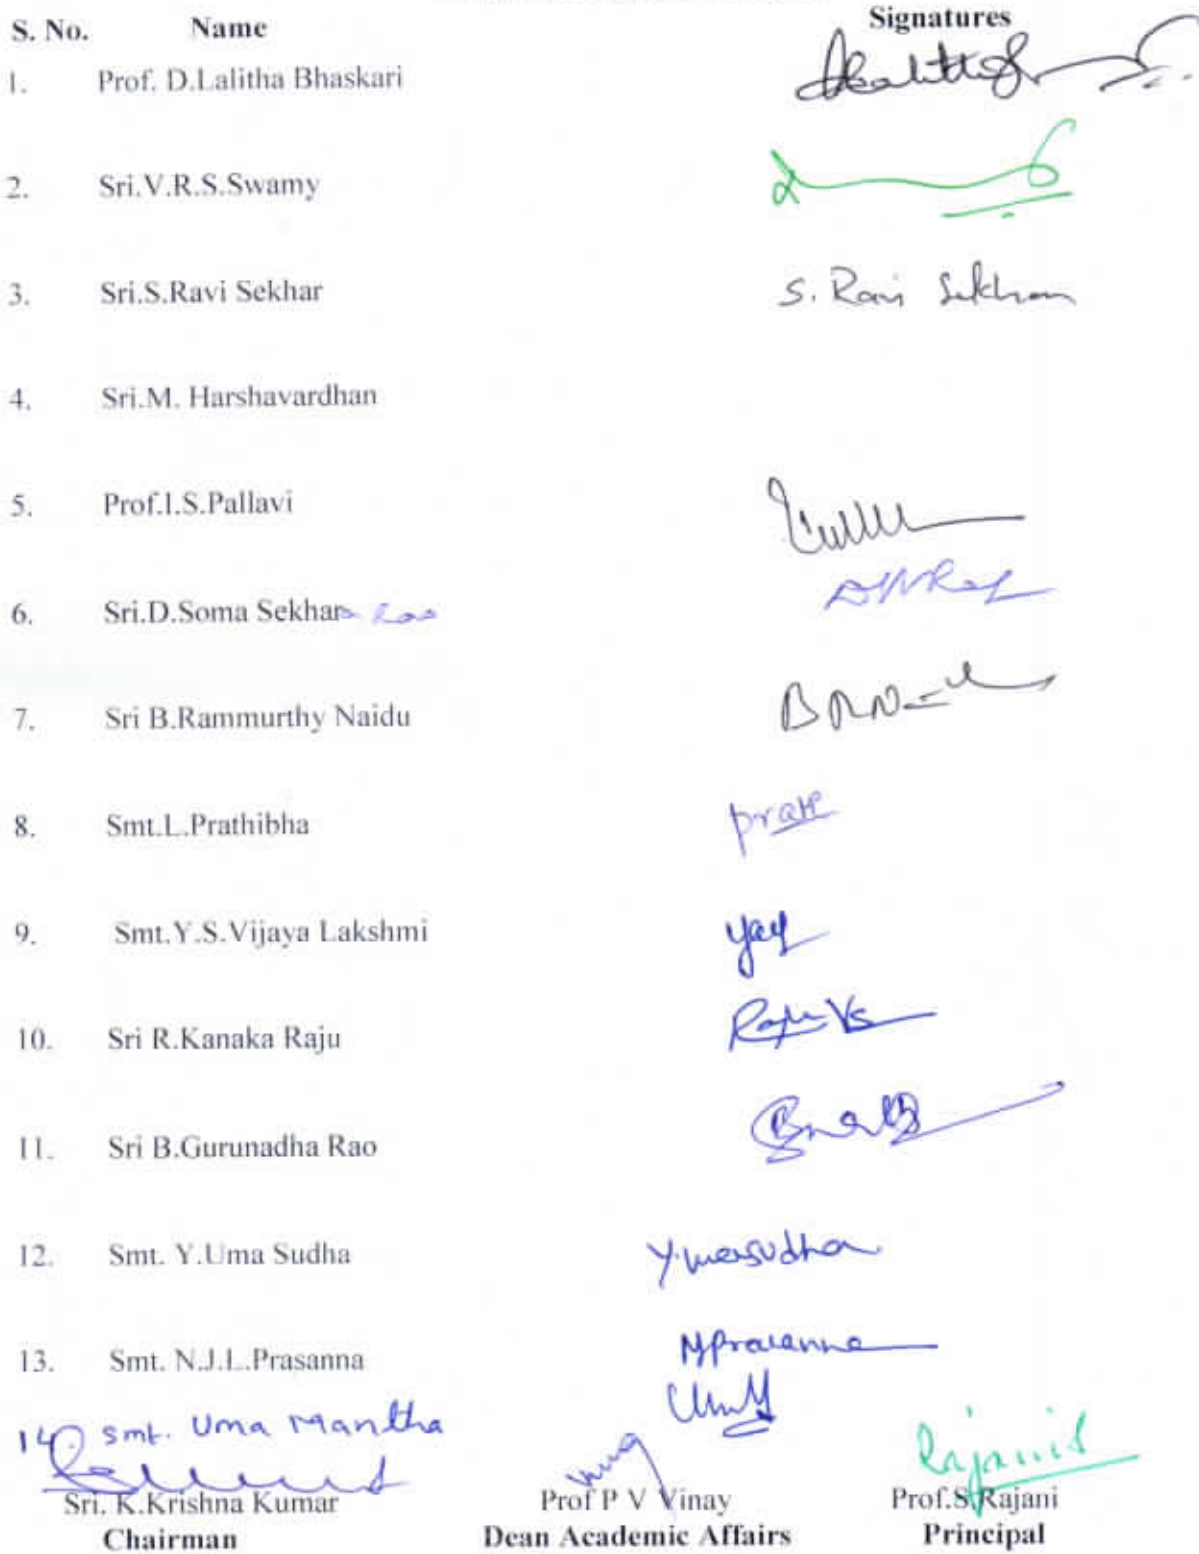 S. No. Name Signatures
1. Prof. D.Lalitha Bhaskari
2. Sri.V.R.S.Swamy
3. Sri.S.Ravi Sekhar S. Ravi Sekhar
4. Sri.M. Harshavardhan
5. Prof.I.S.Pallavi
6. Sri.D.Soma Sekhara Rao
7. Sri B.Rammurthy Naidu
8. Smt.L.Prathibha
9. Smt.Y.S.Vijaya Lakshmi
10. Sri R.Kanaka Raju
11. Sri B.Gurunadha Rao
12. Smt. Y.Uma Sudha Y.Umasudha
13. Smt. N.J.L.Prasanna NPrasanna
14. Smt. Uma Mantha
Rajani S
Sri. K.Krishna Kumar Prof P V Vinay Prof.S.Rajani
Chairman Dean Academic Affairs Principal